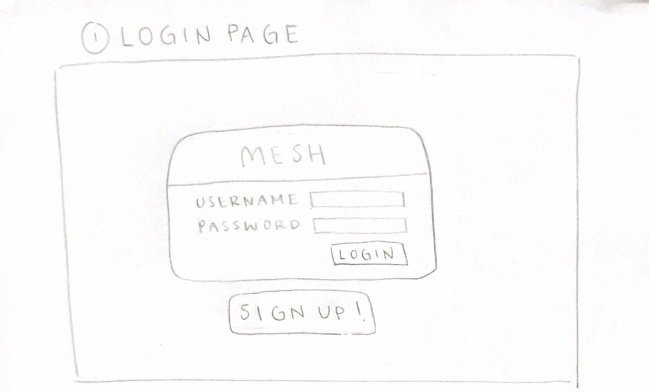 ① LOGIN PAGE
MESH
USERNAME
PASSWORD
LOGIN
SIGN UP!